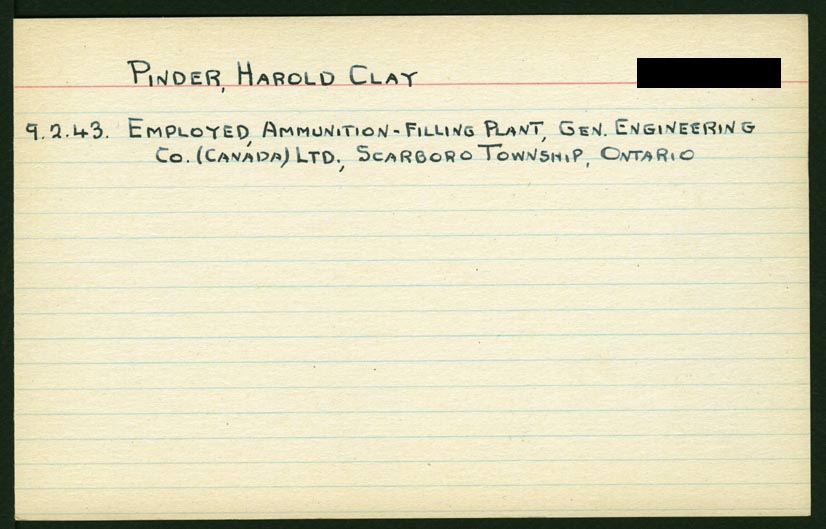 PINDER, HAROLD CLAY
9.2.43. EMPLOYED, AMMUNITION-FILLING PLANT, GEN. ENGINEERING
CO. (CANADA) LTD., SCARBORO TOWNSHIP, ONTARIO